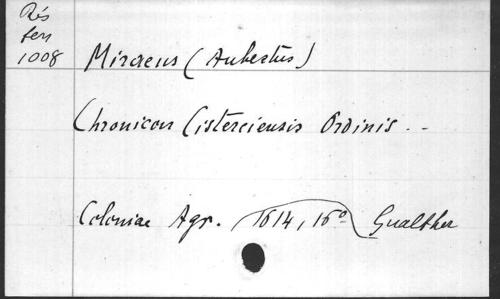 Rés
fen
1008
Miraeus (Aubertus)
Chronicon Cisterciensis Ordinis..
Coloniae Agr. 1614, 16° Gualther